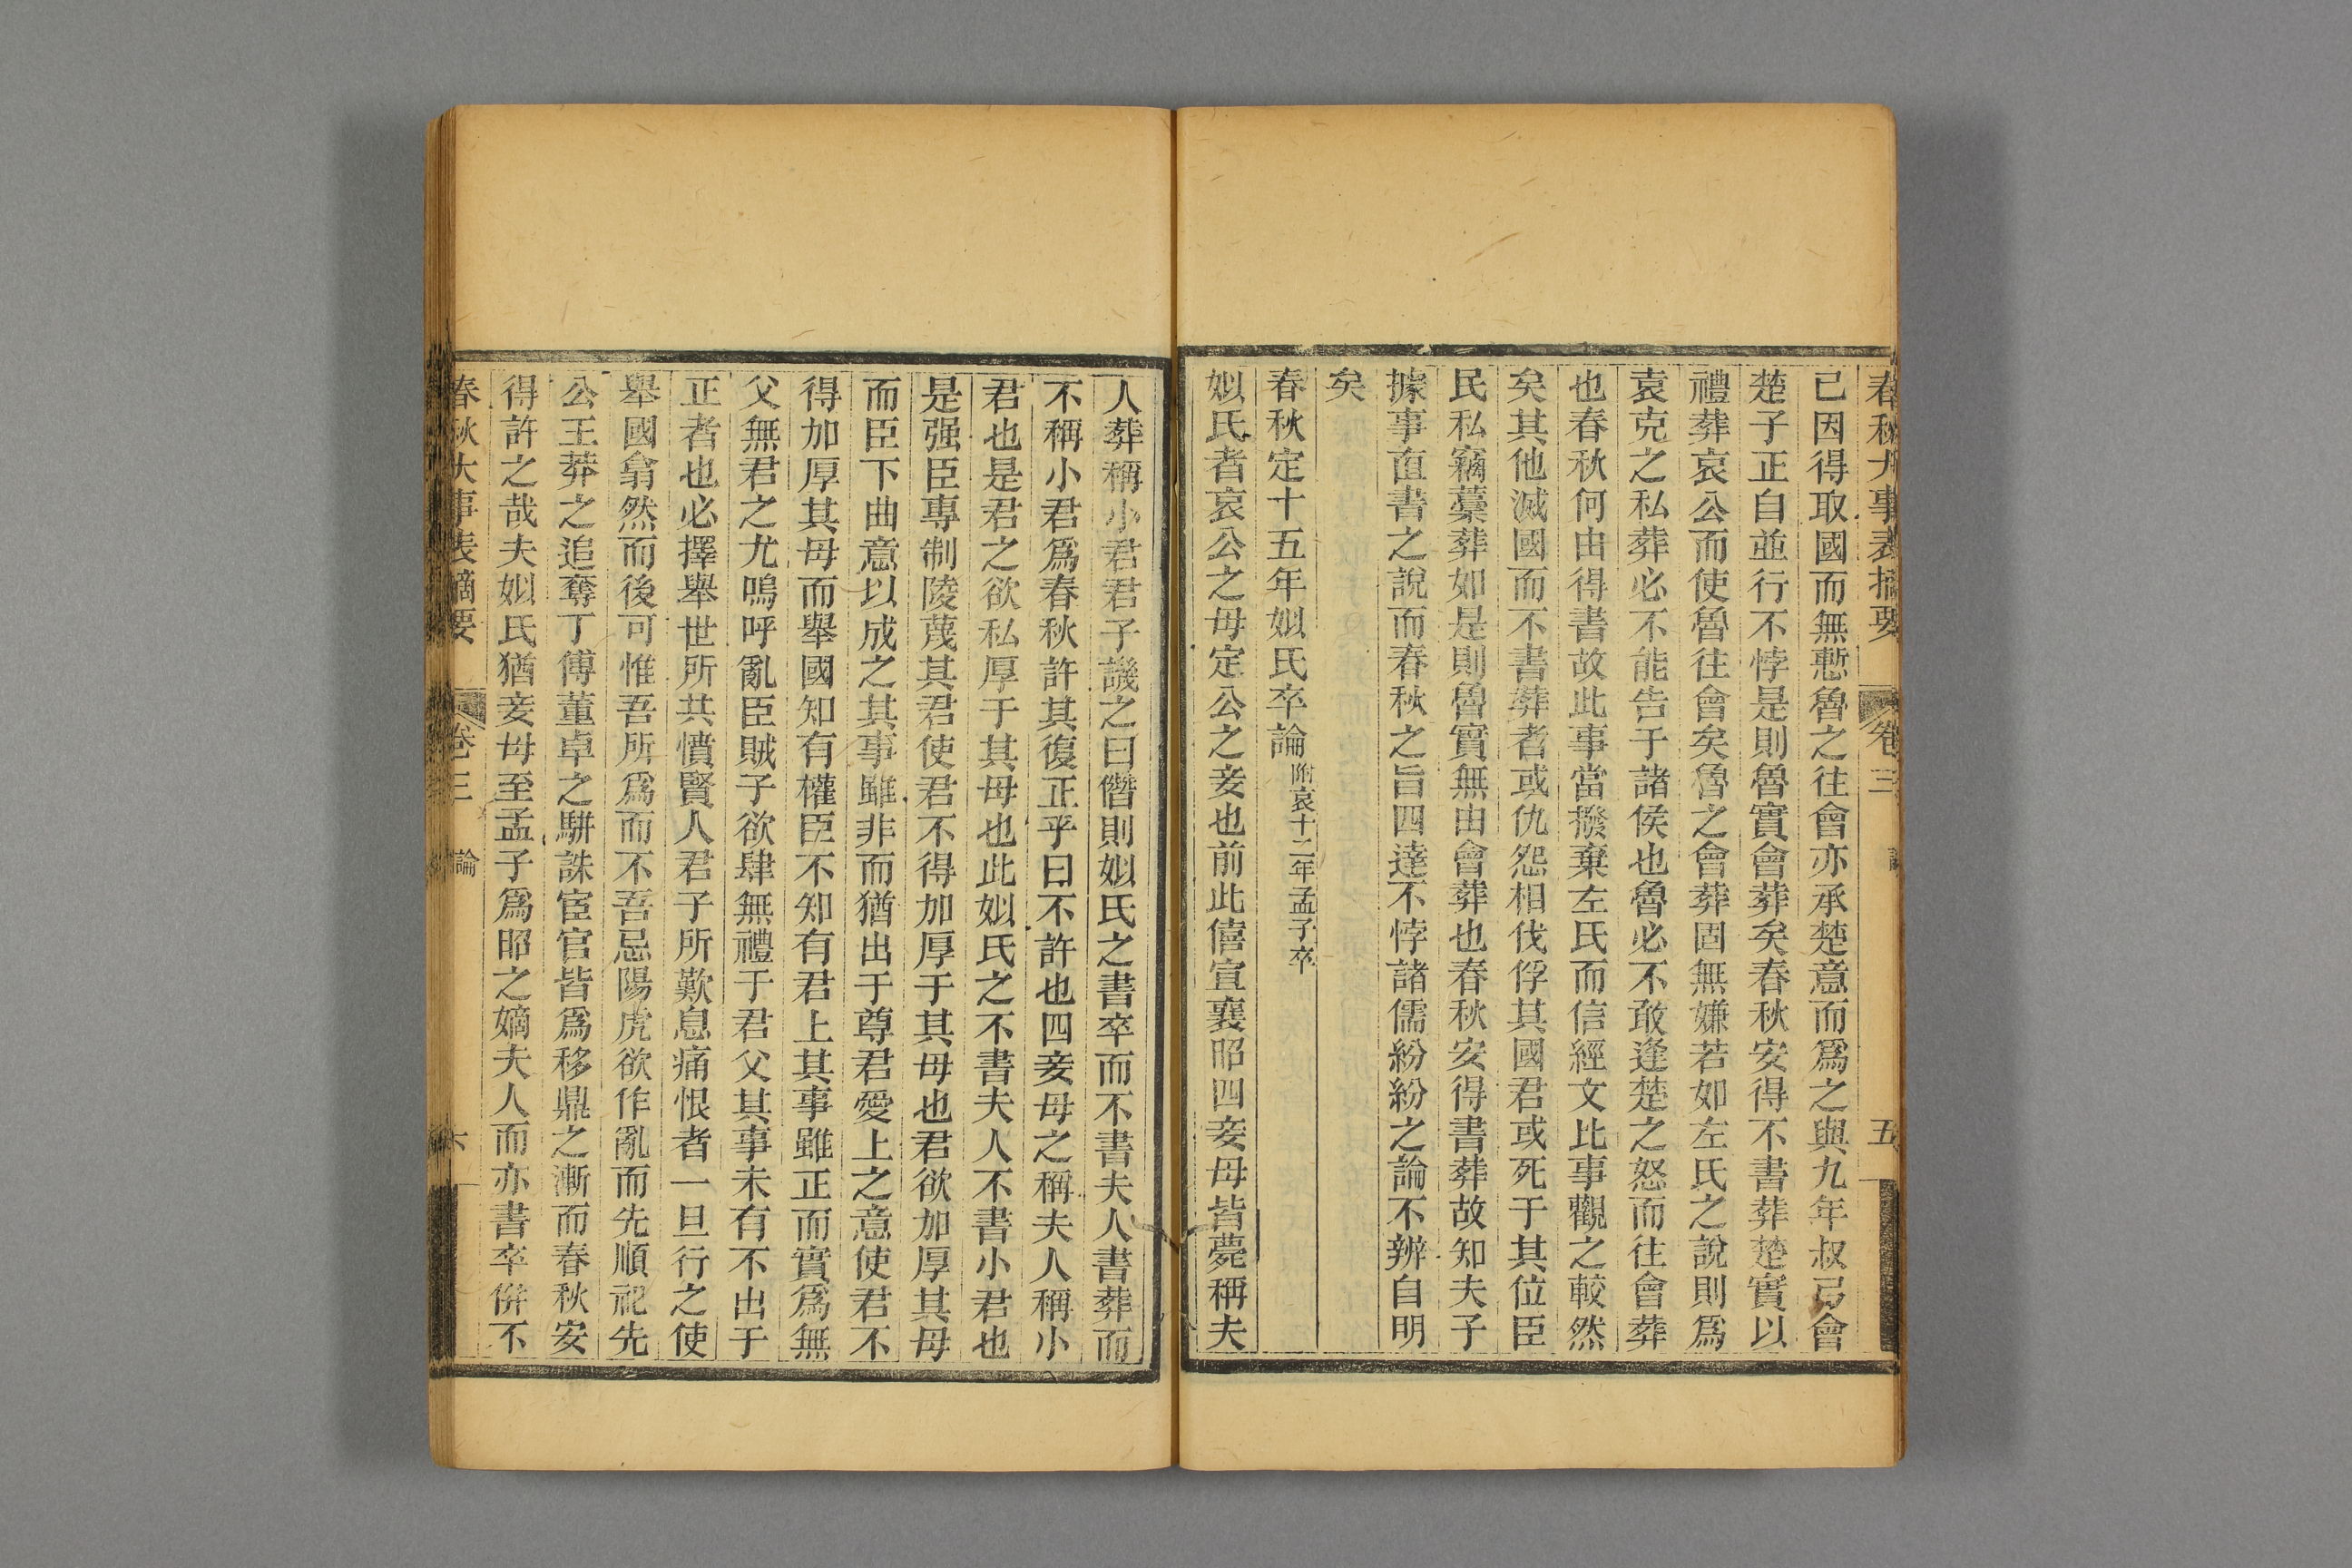 春秋大事表摘要 卷三 論 五
已因得取國而無慙魯之往會亦承楚意而爲之與九年叔弓會
楚子正自並行不悖是則魯實會葬矣春秋安得不書葬楚實以
禮葬哀公而使魯往會矣魯之會葬固無嫌若如左氏之說則爲
袁克之私葬必不能告于諸侯也魯必不敢逢楚之怒而往會葬
也春秋何由得書故此事當撥棄左氏而信經文比事觀之較然
矣其他滅國而不書葬者或仇怨相伐俘其國君或死于其位臣
民私竊藁葬如是則魯實無由會葬也春秋安得書葬故知夫子
據事直書之說而春秋之旨四達不悖諸儒紛紛之論不辨自明
矣
春秋定十五年姒氏卒論附哀十二年孟子卒
姒氏者哀公之母定公之妾也前此僖宣襄昭四妾母皆薨稱夫
人葬稱小君君子譏之曰僭則姒氏之書卒而不書夫人書葬而
不稱小君爲春秋許其復正乎曰不許也四妾母之稱夫人稱小
君也是君之欲私厚于其母也此姒氏之不書夫人不書小君也
是强臣專制陵蔑其君使君不得加厚于其母也君欲加厚其母
而臣下曲意以成之其事雖非而猶出于尊君愛上之意使君不
得加厚其母而舉國知有權臣不知有君上其事雖正而實爲無
父無君之尤嗚呼亂臣賊子欲肆無禮于君父其事未有不出于
正者也必擇舉世所共憤賢人君子所歎息痛恨者一旦行之使
舉國翕然而後可惟吾所爲而不吾忌陽虎欲作亂而先順祀先
公王莽之追奪丁傅董卓之駢誅宦官皆爲移鼎之漸而春秋安
得許之哉夫姒氏猶妾母至孟子爲昭之嫡夫人而亦書卒倂不
春秋大事表摘要 卷三 論 六